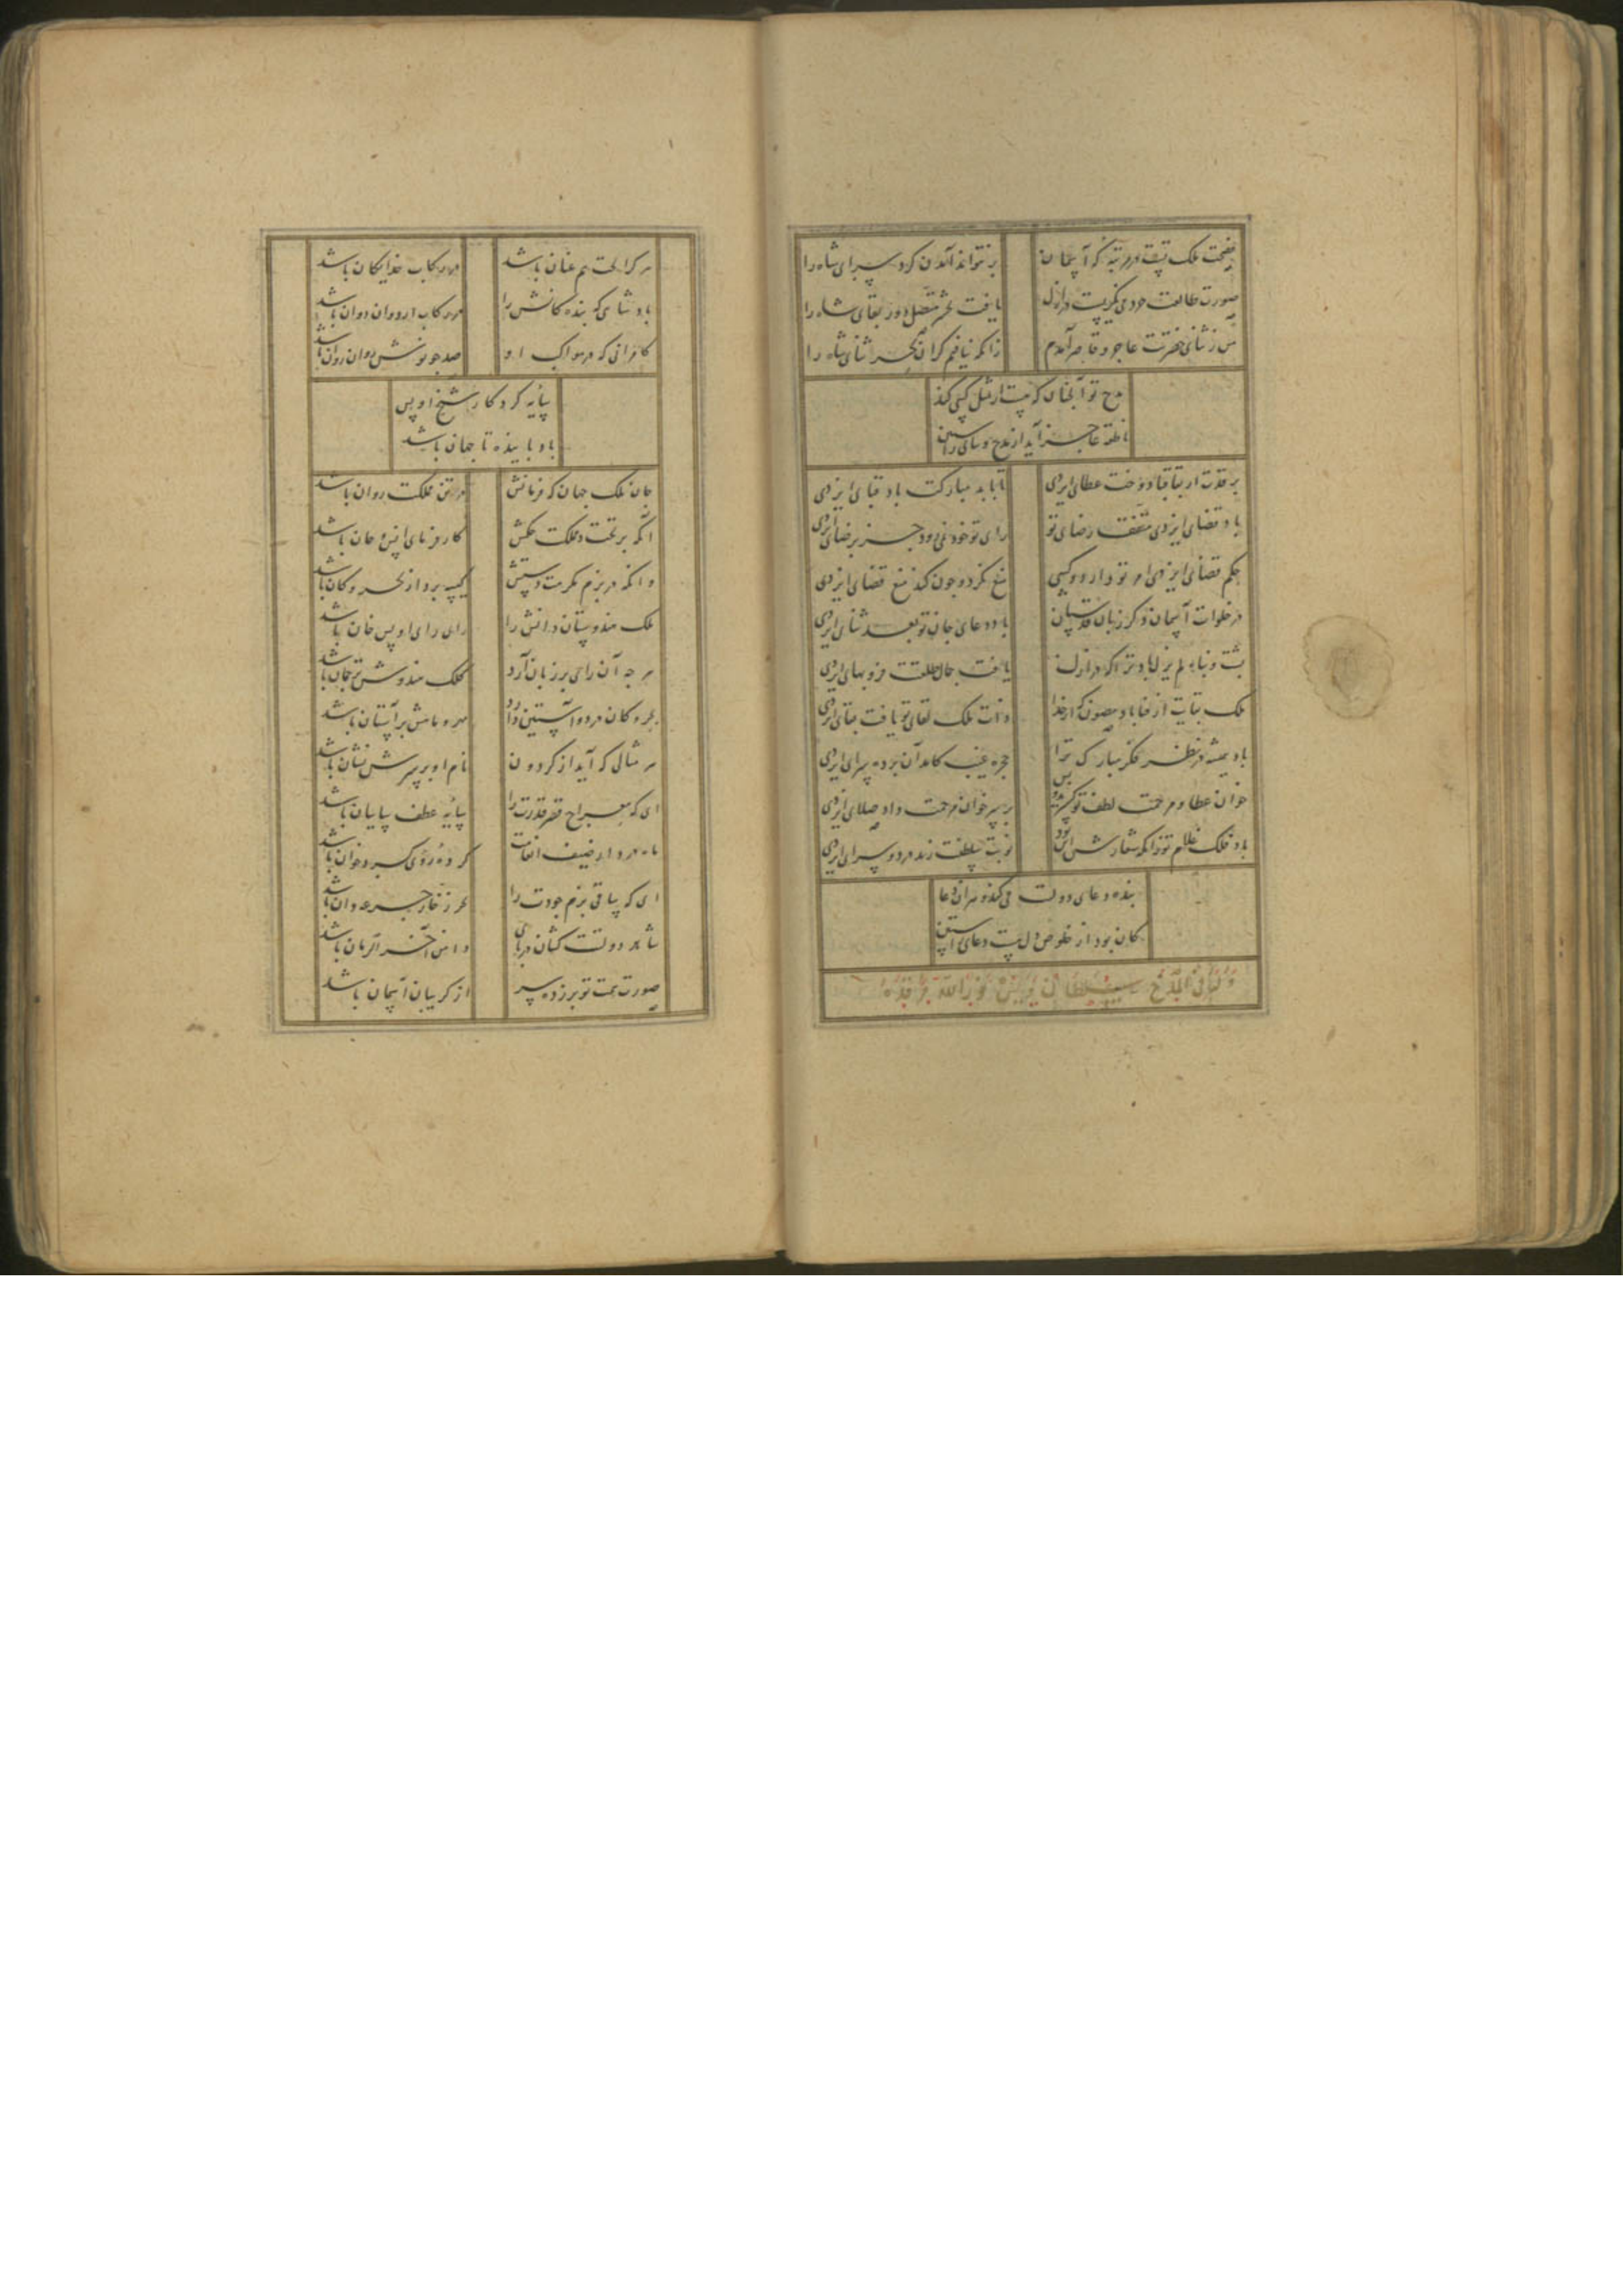 بر نتواند آمدن گرد سرای شاه را
صورت طالعت خرد می‌نگریست در ازل
یافت عمر متصل دور بقای شاه را
من ز ثنای حضرتت عاجز و قاصر آمدم
زانکه نیافتم کران بحر ثنای شاه را
مدح تو آنچنان که هست ار مثل کسی کند
ناطقه عاجز آید از مدح و
تا بابد مبارکت باد قبای ایزدی
باد قضای ایزدی متفق رضای تو
رای تو خود نمی‌رود جز برضای ایزدی
حکم قضای ایزدی امر تو دارد و کسی
منع نکرد و چون کند منع قضای ایزدی
در خلوات آسمان ذکر زبان قدسیان
باد دعای جان تو بعد ثنای ایزدی
پشت و پناه لم یزل باد ترا که در ازل
یافت جمال طلعتت فر و بهای ایزدی
ملک بقایت از فنا باد مصون که از خدا
ذات ملک لقای تو یافت بقای ایزدی
باد همیشه در نظر فکر مبارک ترا
حجره غیب کامد آن پرده سرای ایزدی
خوان عطا و مرحمت لطف تو گسترید و بس
بر سر خوان مرحمت داد صلای ایزدی
باد فلک غلام تو زانکه شعارش این بود
نوبت سلطنت زند در دو سرای ایزدی
بنده دعای دولتت می‌کند و بر آن دعا
کان بود از خلوص دل هست دعای راستین
وله ایضا فی المدح سلطان اویس نور الله مرقده
هر کرا بخت هم عنان باشد
در رکاب خدایگان باشد
پادشاهی که بندگانش را
در رکاب اردوان دوان باشد
کامرانی که در مواکب او
صد چو نوشین روان روان باشد
سایه کردگار شیخ اویس
باد پاینده تا جهان باشد
جان ملک جهان که فرمانش
در تن مملکت روان باشد
آنکه بر تخت مملکت حکمش
کار فرمای انس و جان باشد
وانکه در بزم مکرمت دستش
کیسه پرداز بحر و کان باشد
ملک هندوستان دانش را
رای رای اویس خان باشد
هر چه آن رای بر زبان آرد
کلک هندوش ترجمان باشد
بحر و کان در دو آستین دارد
هر مثالی که آید از گردون
نام او بر سرش نشان باشد
ای که معراج قصر قدرت را
پایه عطف سایبان باشد
گرده روی گرد خوان باشد
ای که ساقی بزم جودت را
شاهد دولتت کشان در پای
دامن آخر الزمان باشد
صورت همت تو بر زده سر
از گریبان آسمان باشد